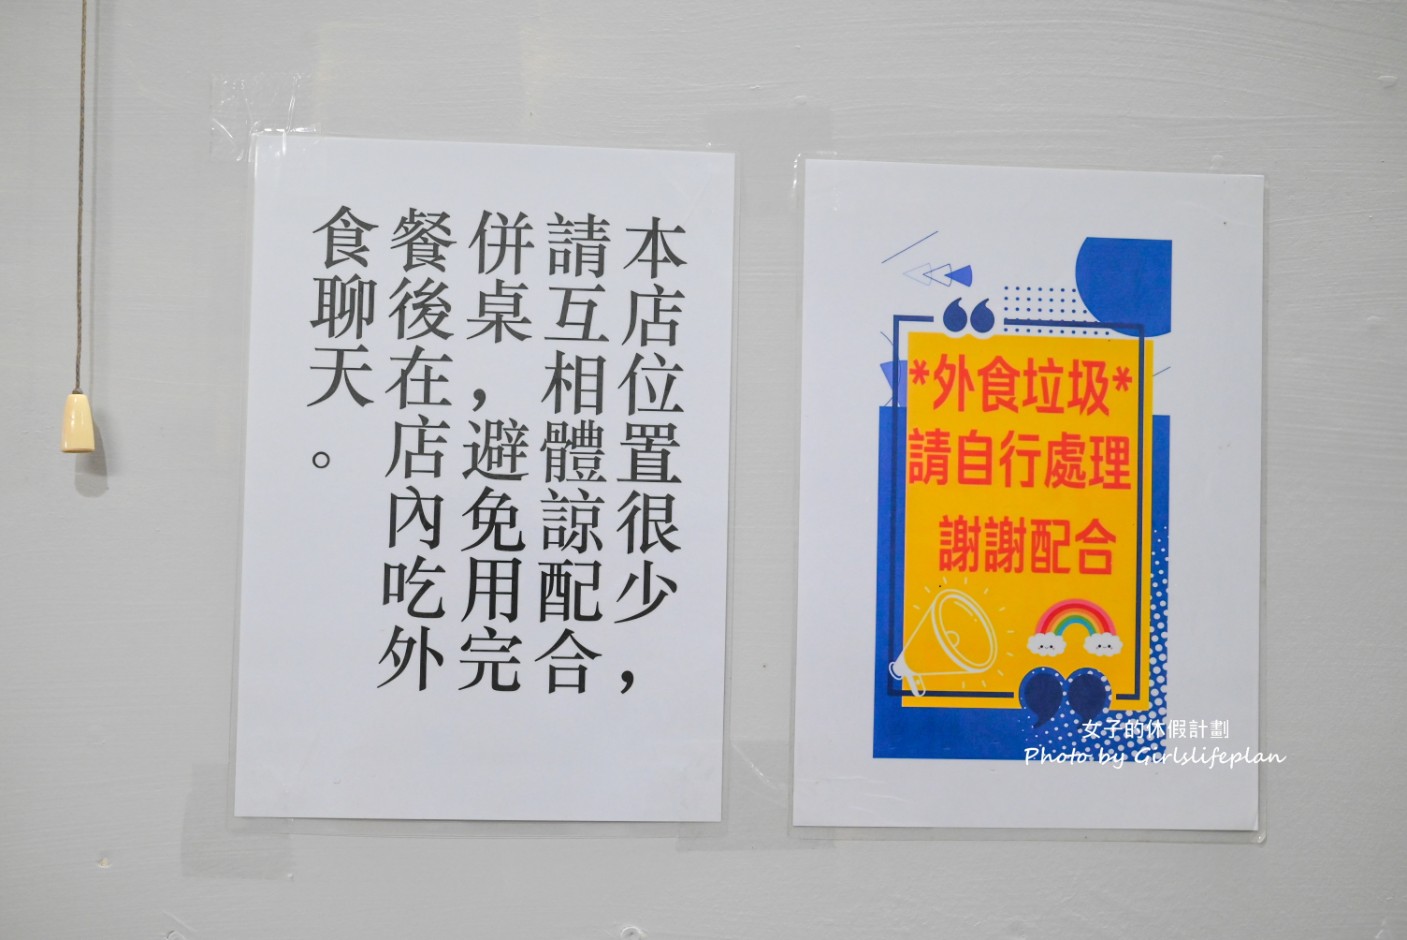 本店位置很少，
請互相體諒配合
併桌，避免用完
餐後在店內吃外
食聊天。
*外食垃圾*
請自行處理
謝謝配合
女子的休假計劃
Photo by Girlslifeplan